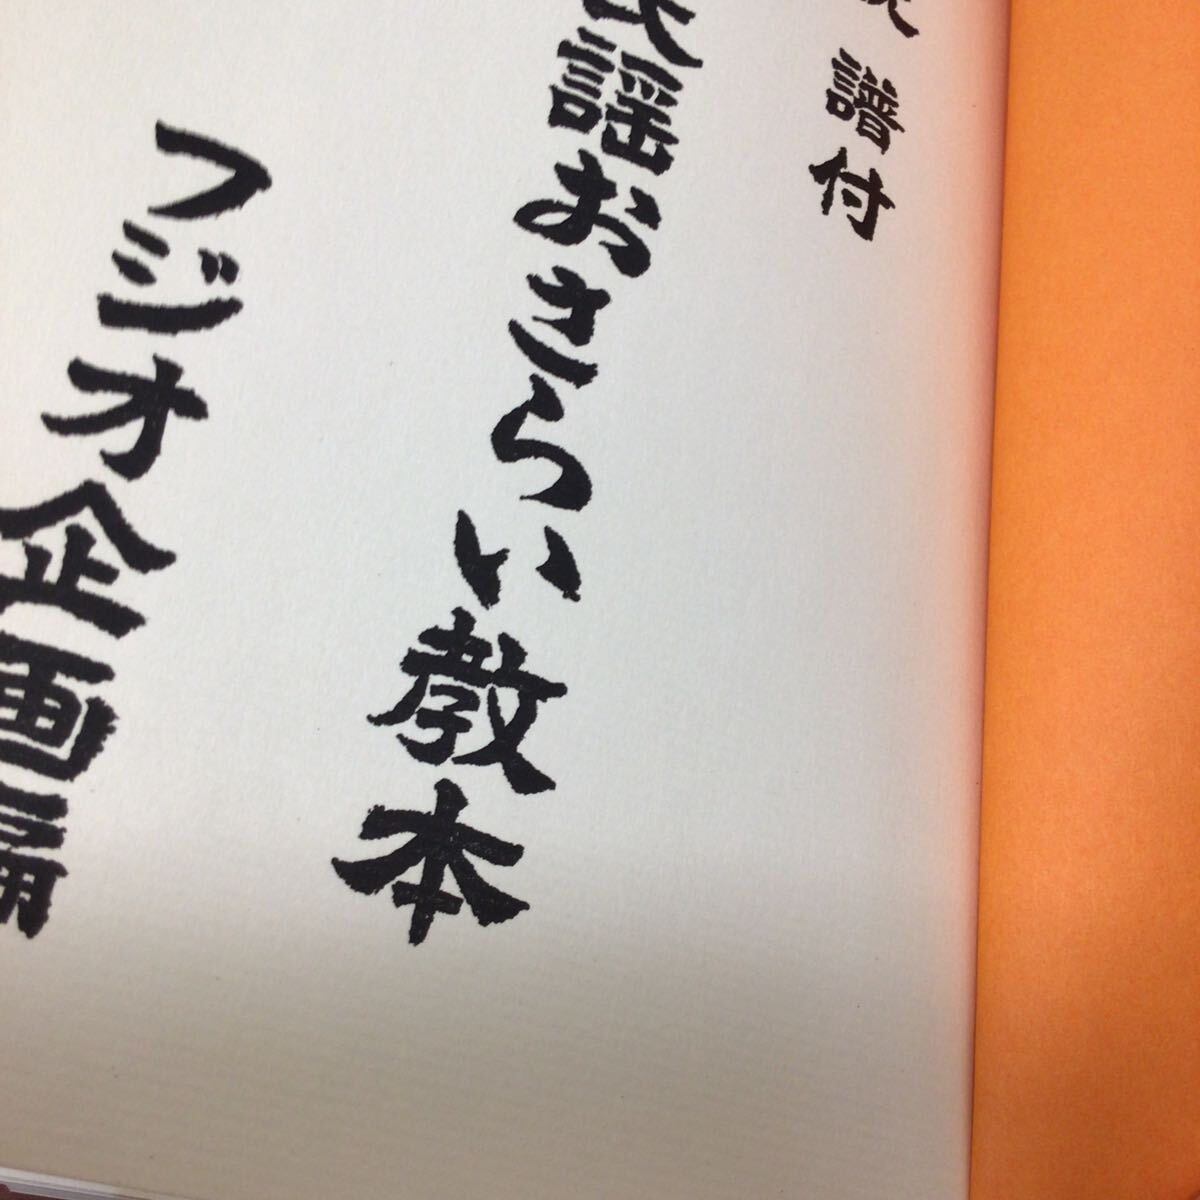 譜付
謡おさらい教本
フジオ企画編